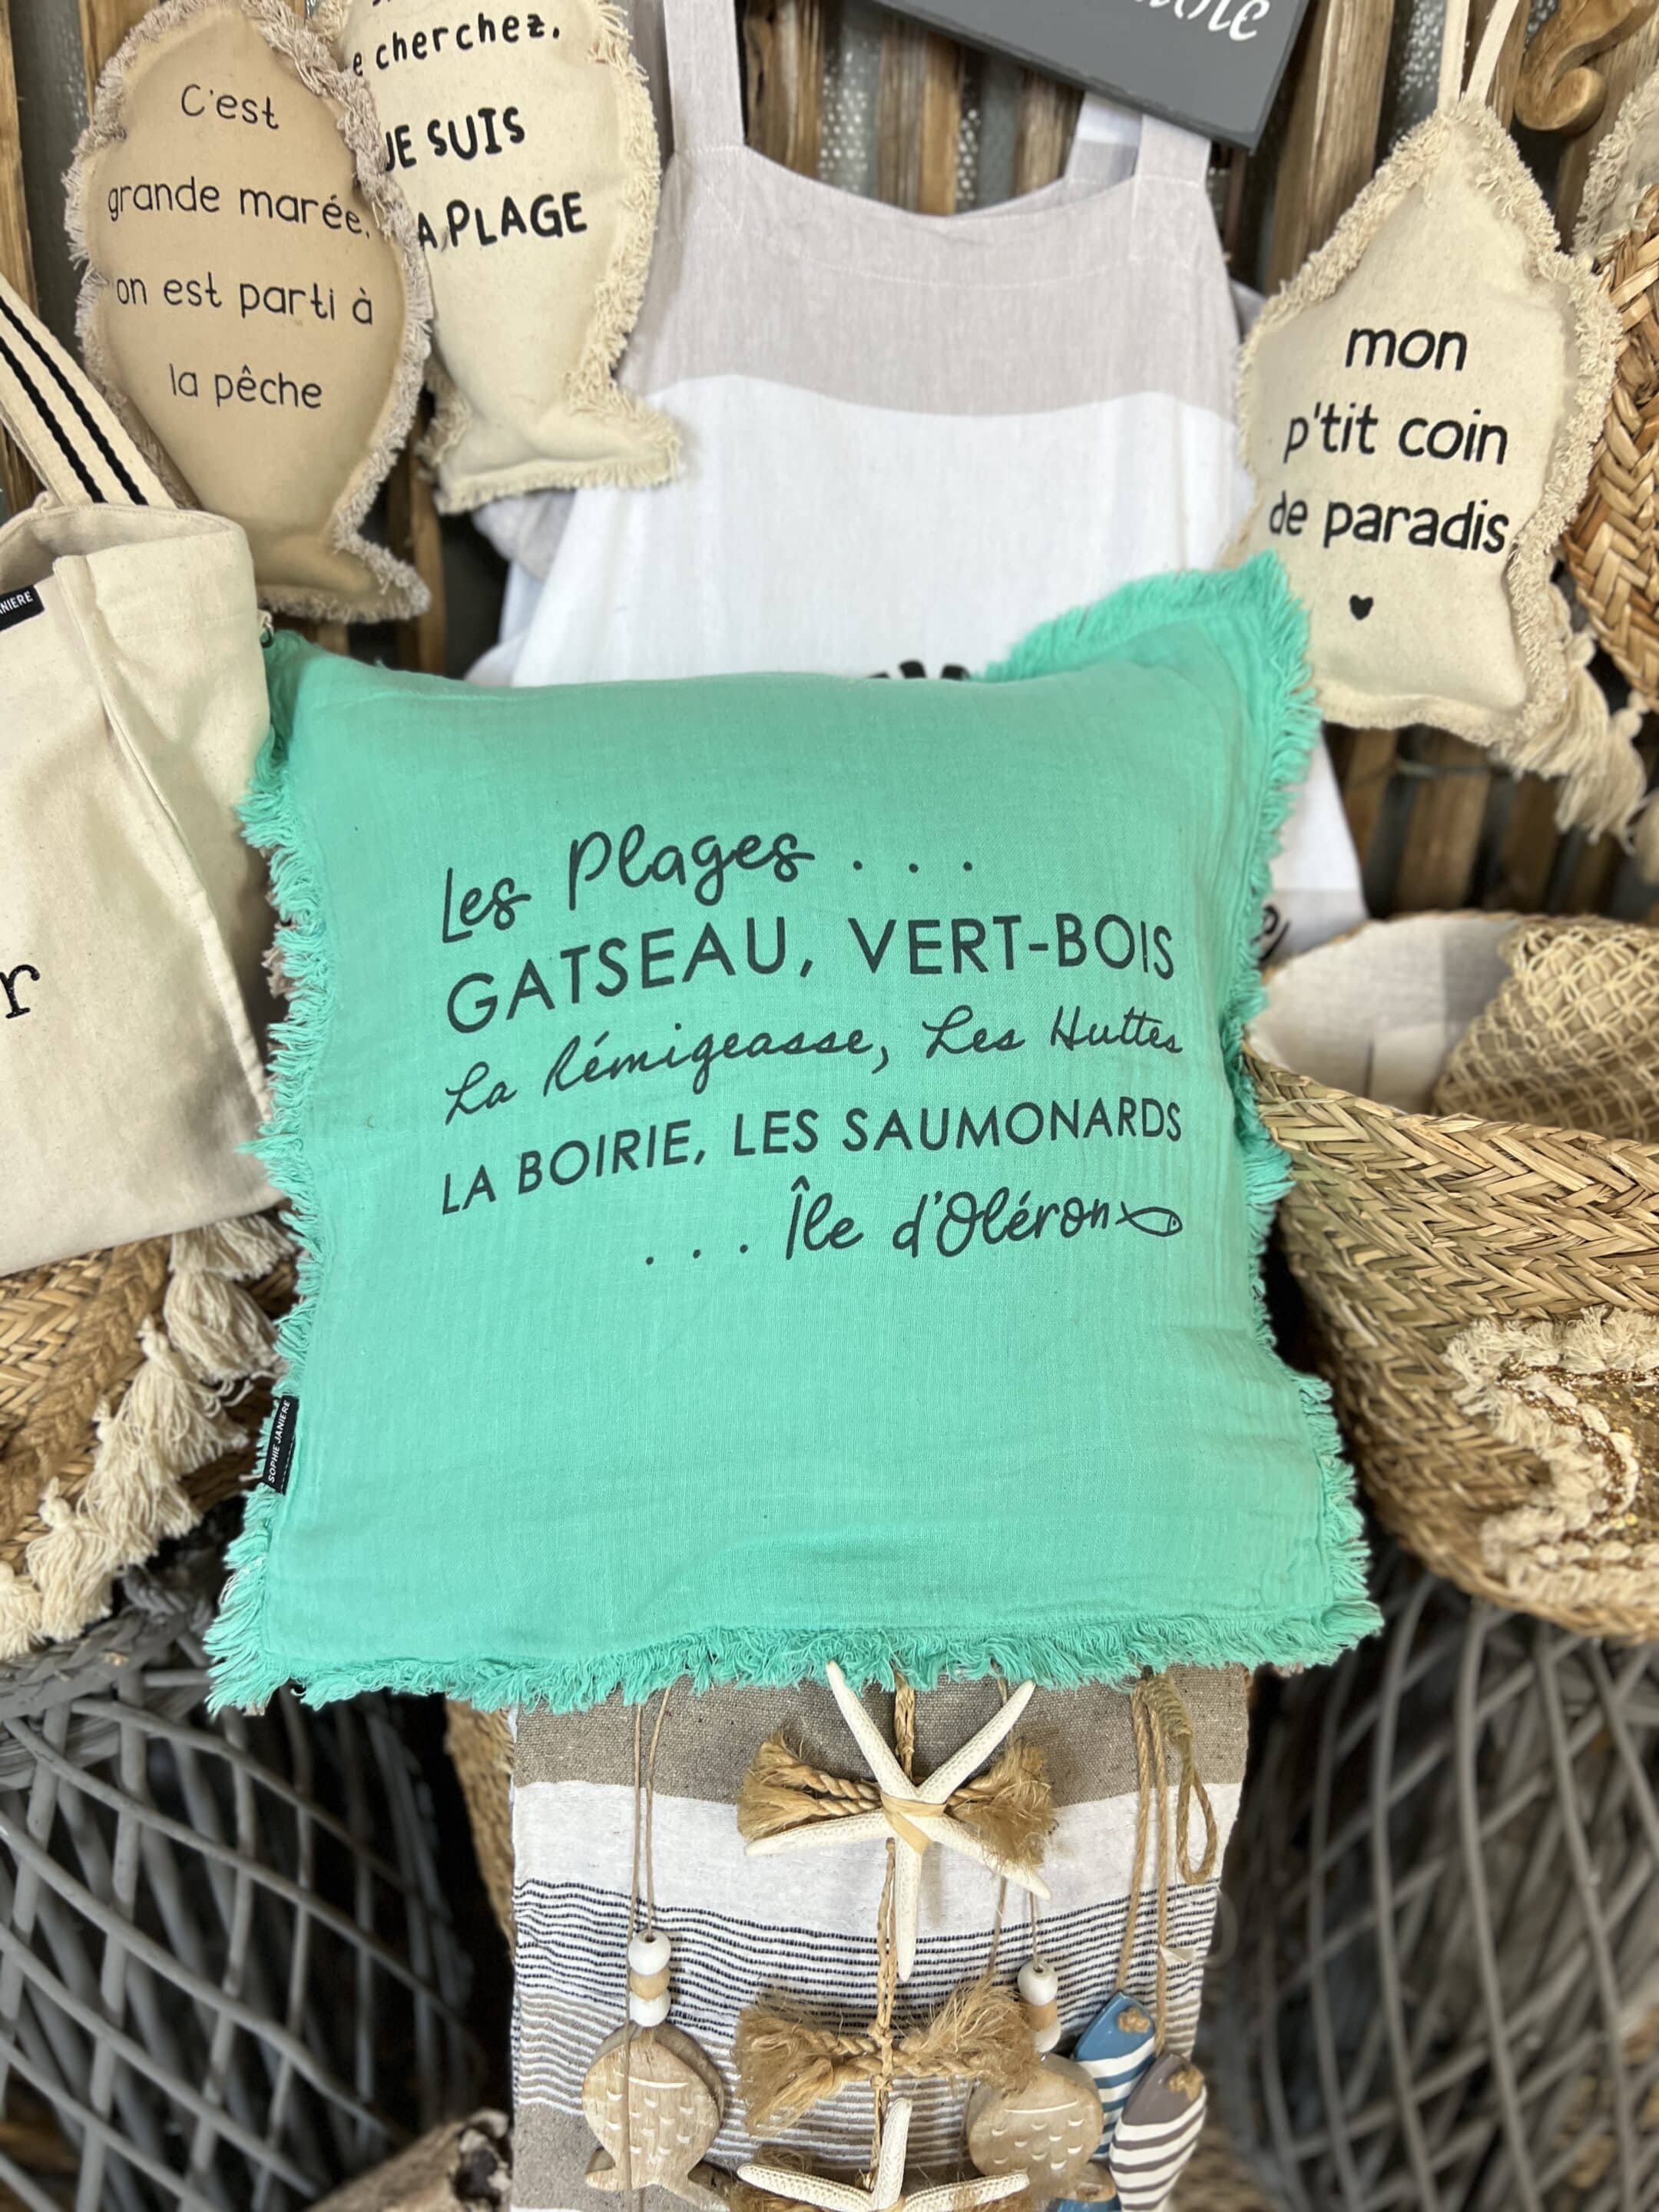 C'est
grande marée,
on est parti à
la pêche
cherchez,
JE SUIS
PLAGE
mon
p'tit coin
de paradis
Les Plages . . .
GATSEAU, VERT-BOIS
La Rémigeasse, Les Huttes
LA BOIRIE, LES SAUMONARDS
. . . Île d'Oléron
SOPHIE JANIERE